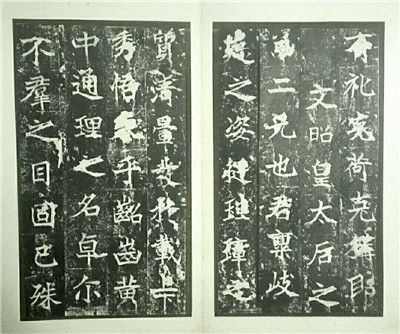 有礼克荷克構即
文昭皇太后之
弟二兄也君稟岐
嶷之姿挺珪璋之
質清暈發於載
秀悟表乎齠齒黃
中通理之名卓尒
不羣之目固已殊